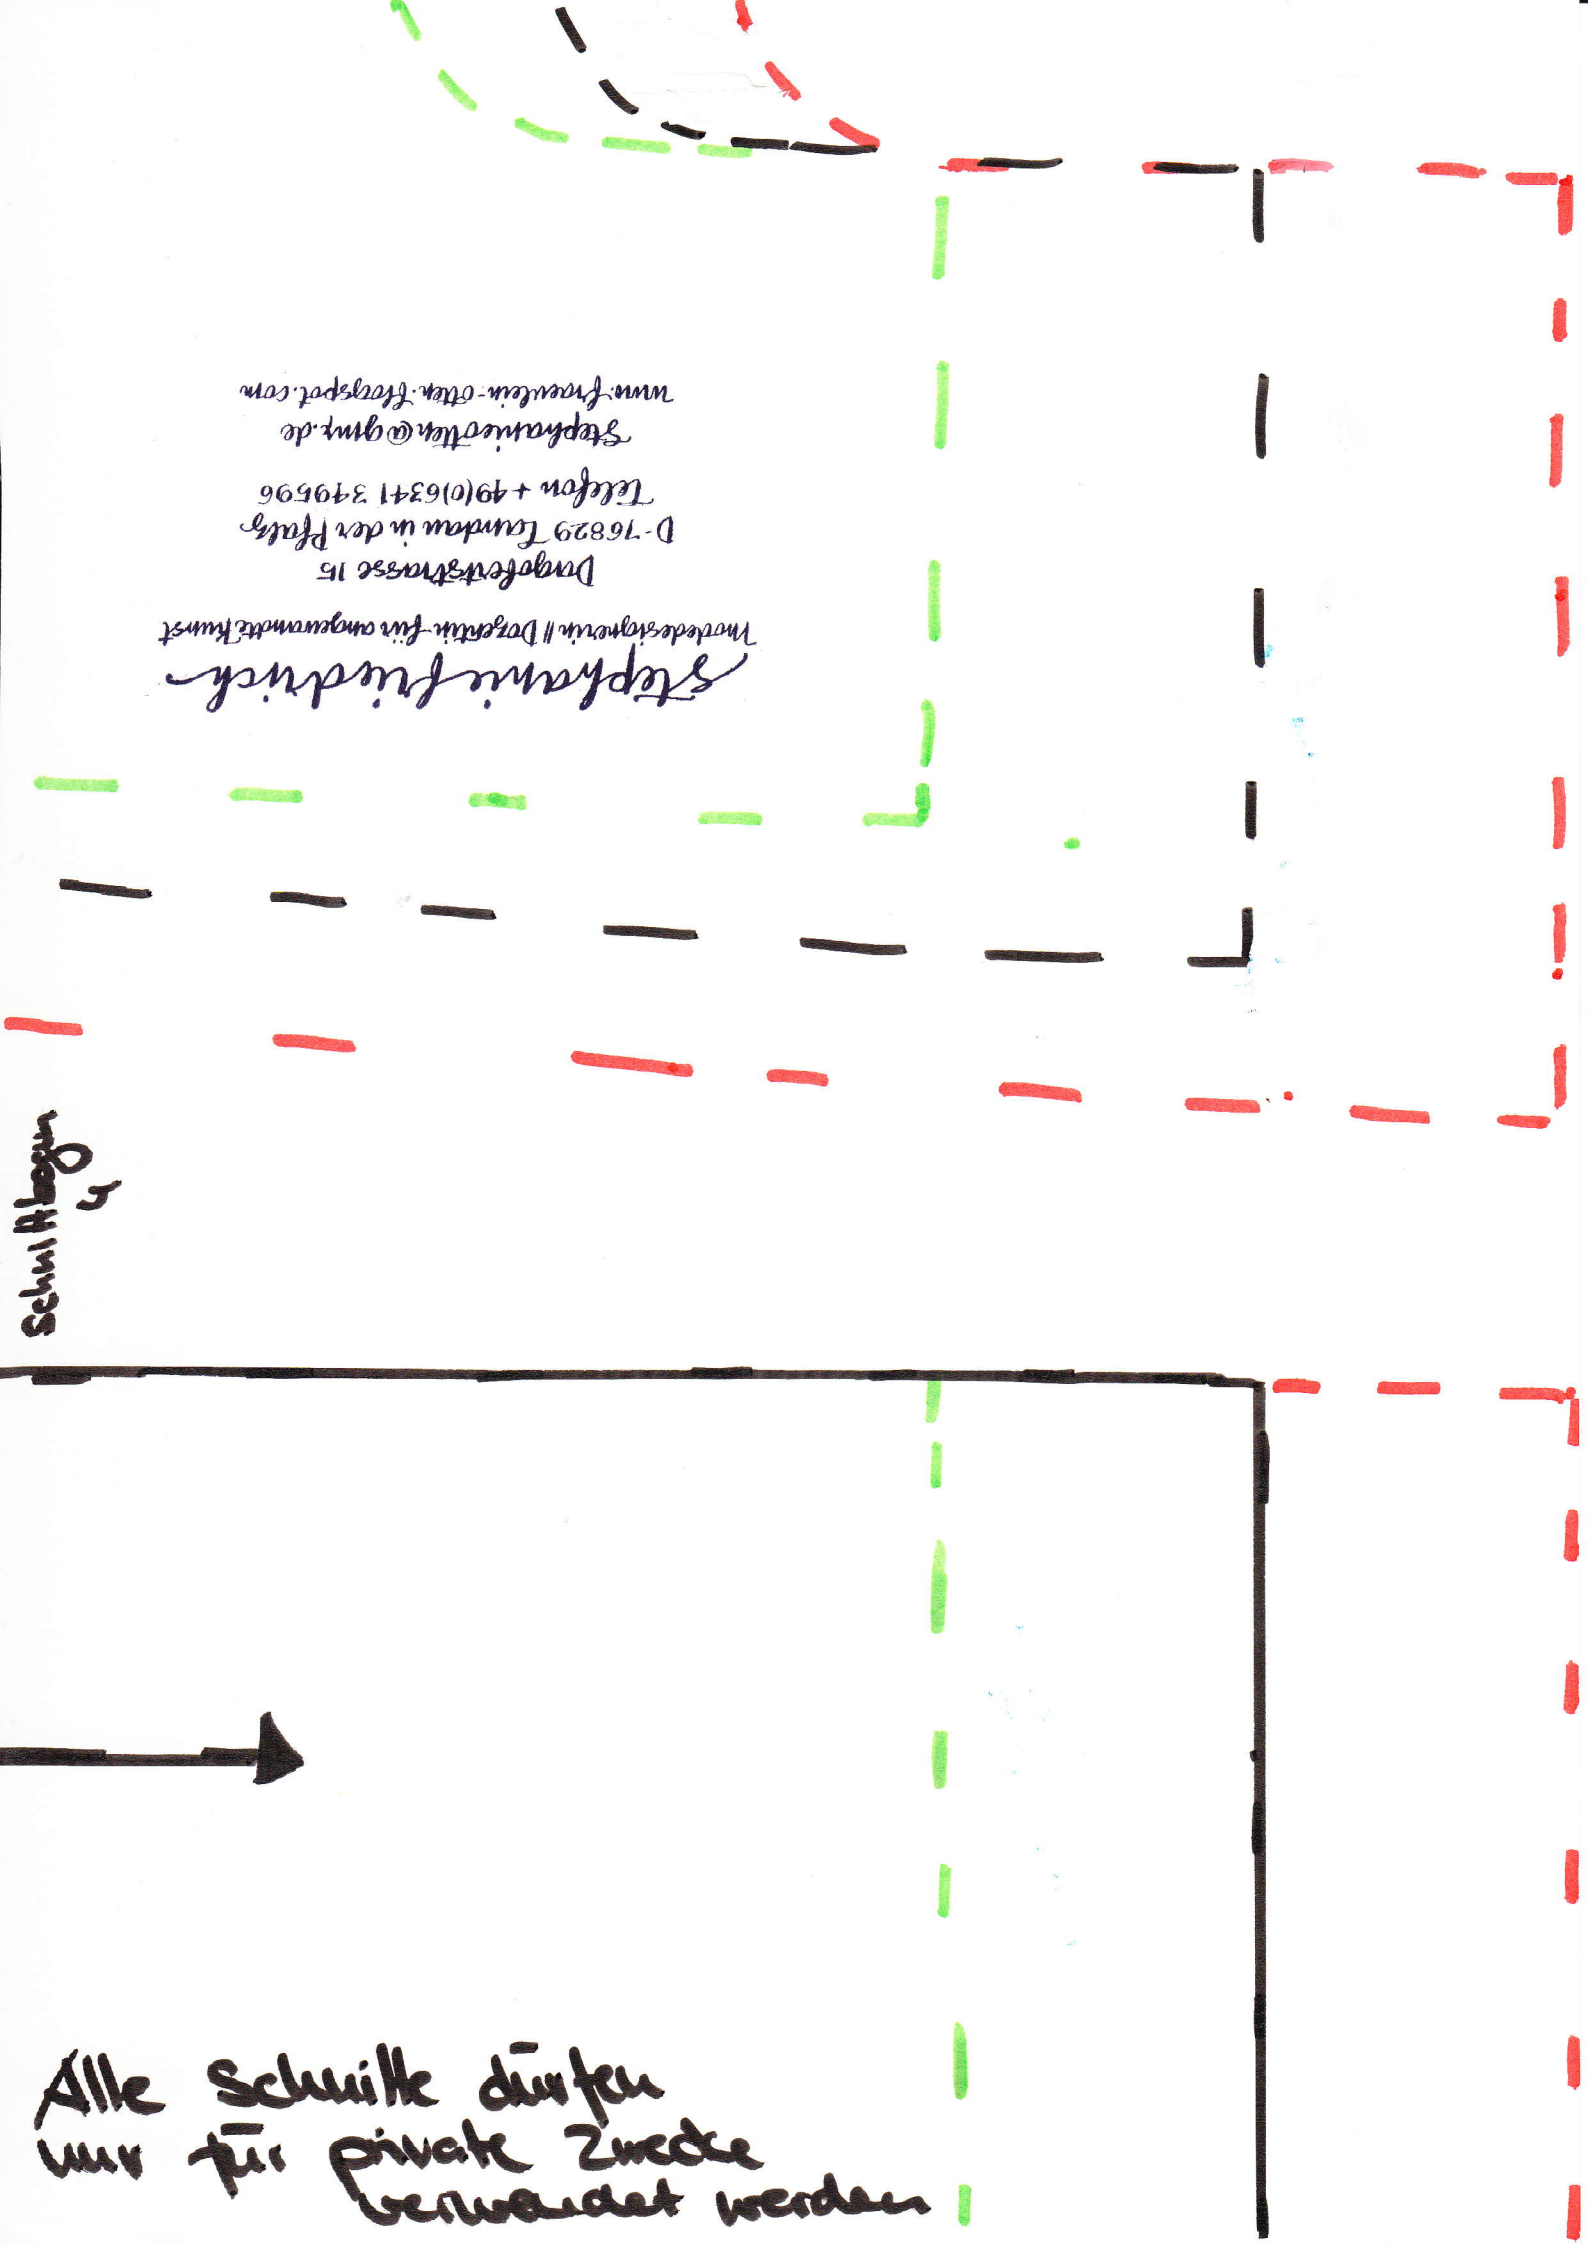 Stephanie Friedrich
Modedesignerin // Dozentin für angewandte Kunst
Dagobertstrasse 15
D-76829 Landau in der Pfalz
Telefon + 49(0)6341 349596
Stephanieotten@gmx.de
www.fraeulein-otten.blogspot.com
Schnittbogen
4
Alle Schnitte dürfen
nur für private Zwecke
verwendet werden